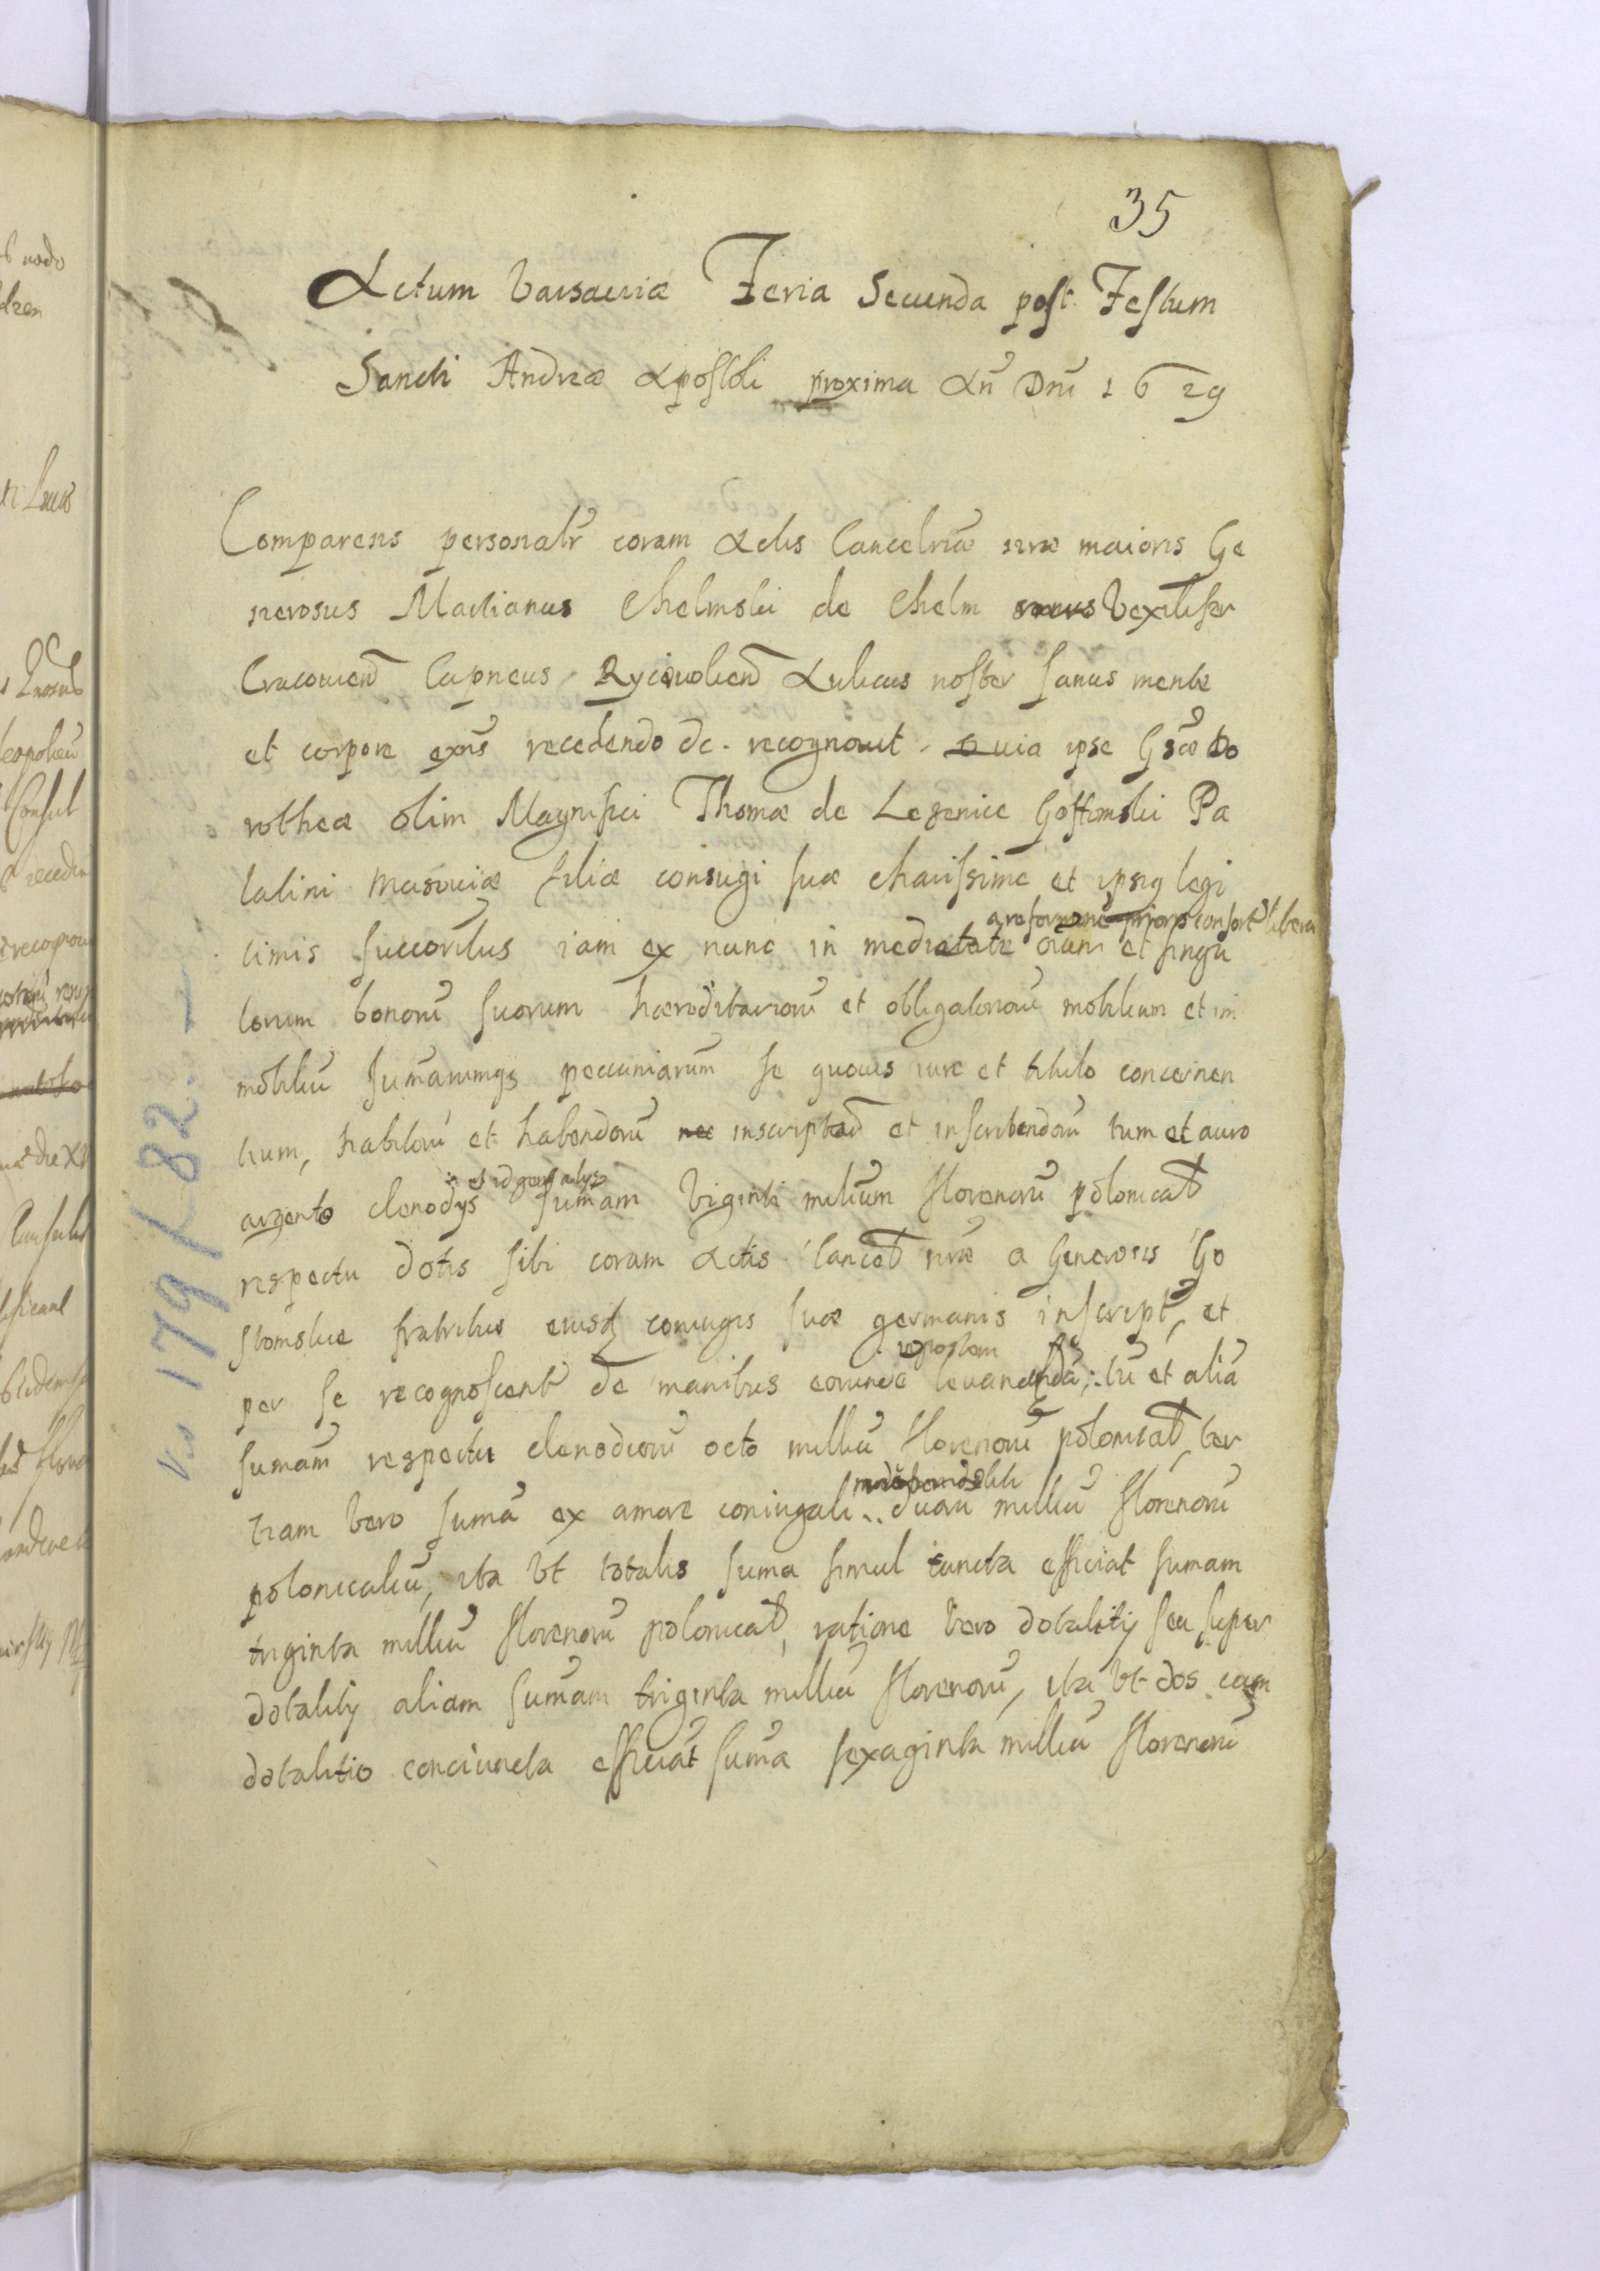 35
Actum Varsaviæ Feria Secunda post Festum
Sancti Andreæ Apostoli proxima An̄ Dnī 1629
Comparens personalr̄ coram Actis Cancelriæ nr̄æ maioris Ge
nerosus Martianus Chelmski de Chelm Vexilifer
Cracouien̄ Capneus Ryciwolien̄ Aulicus noster sanus mente
et corpore exn̄s recedendo &c. recognouit. Quia ipse Gsæ Do
rotheæ olim Magnifici Thomæ de Lezenice Gostomski Pa
latini Masouiæ filiæ coniugi suæ charissimæ et ipsiq legi
a reformnē prioris consort libera
timis succoribus iam ex nunc in medietate oium et singu
lorum bonorū suorum hæreditariorū et obligatoriorū mobilium et im
mobiliū sum̄arumqz peccuniarum se quouis iure et titulo concernen
tium, habitorū et habendorū nec inscriptad et inscribendorū tum et auro
et id genus alys
argento clenodys sum̄am Viginti millium florenorū polonicał
respectu dotis sibi coram Actis Canceł nr̄æ a Generosis Go
stomskie fratribus eiusd coniugis suæ germanis inscript, et
repositam
per se recognoscent de manibus eorunde leuandā, tū et aliā
sumam̄ respectu clenodiorū octo milliū florenorū polonicał, ter
tiam vero sumā ex amore coniugali duarū milliū florenorū
polonicaliū, ita Vt totalis suma simul iuncta efficiat sumam
triginta milliū florenorū polonicał, ratione Vero dotalitij seu super
dotalitij aliam sum̄am triginta milliū florenorū, ita Vt dos cum
dotalitio conciuncta efficiat sumā sexaginta milliū florenorū
Vs 179/82.—